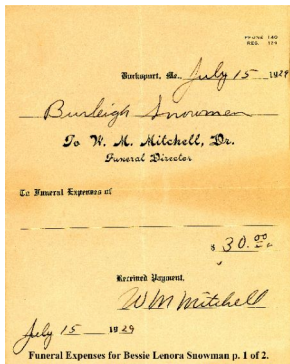 PHONE 140
RES. 129
Bucksport, Me., July 15 1929
Burleigh Snowman
To W. M. Mitchell, Dr.
Funeral Director
To Funeral Expenses of
$ 30.00
Received Payment,
W M Mitchell
July 15 1929
Funeral Expenses for Bessie Lenora Snowman p. 1 of 2.